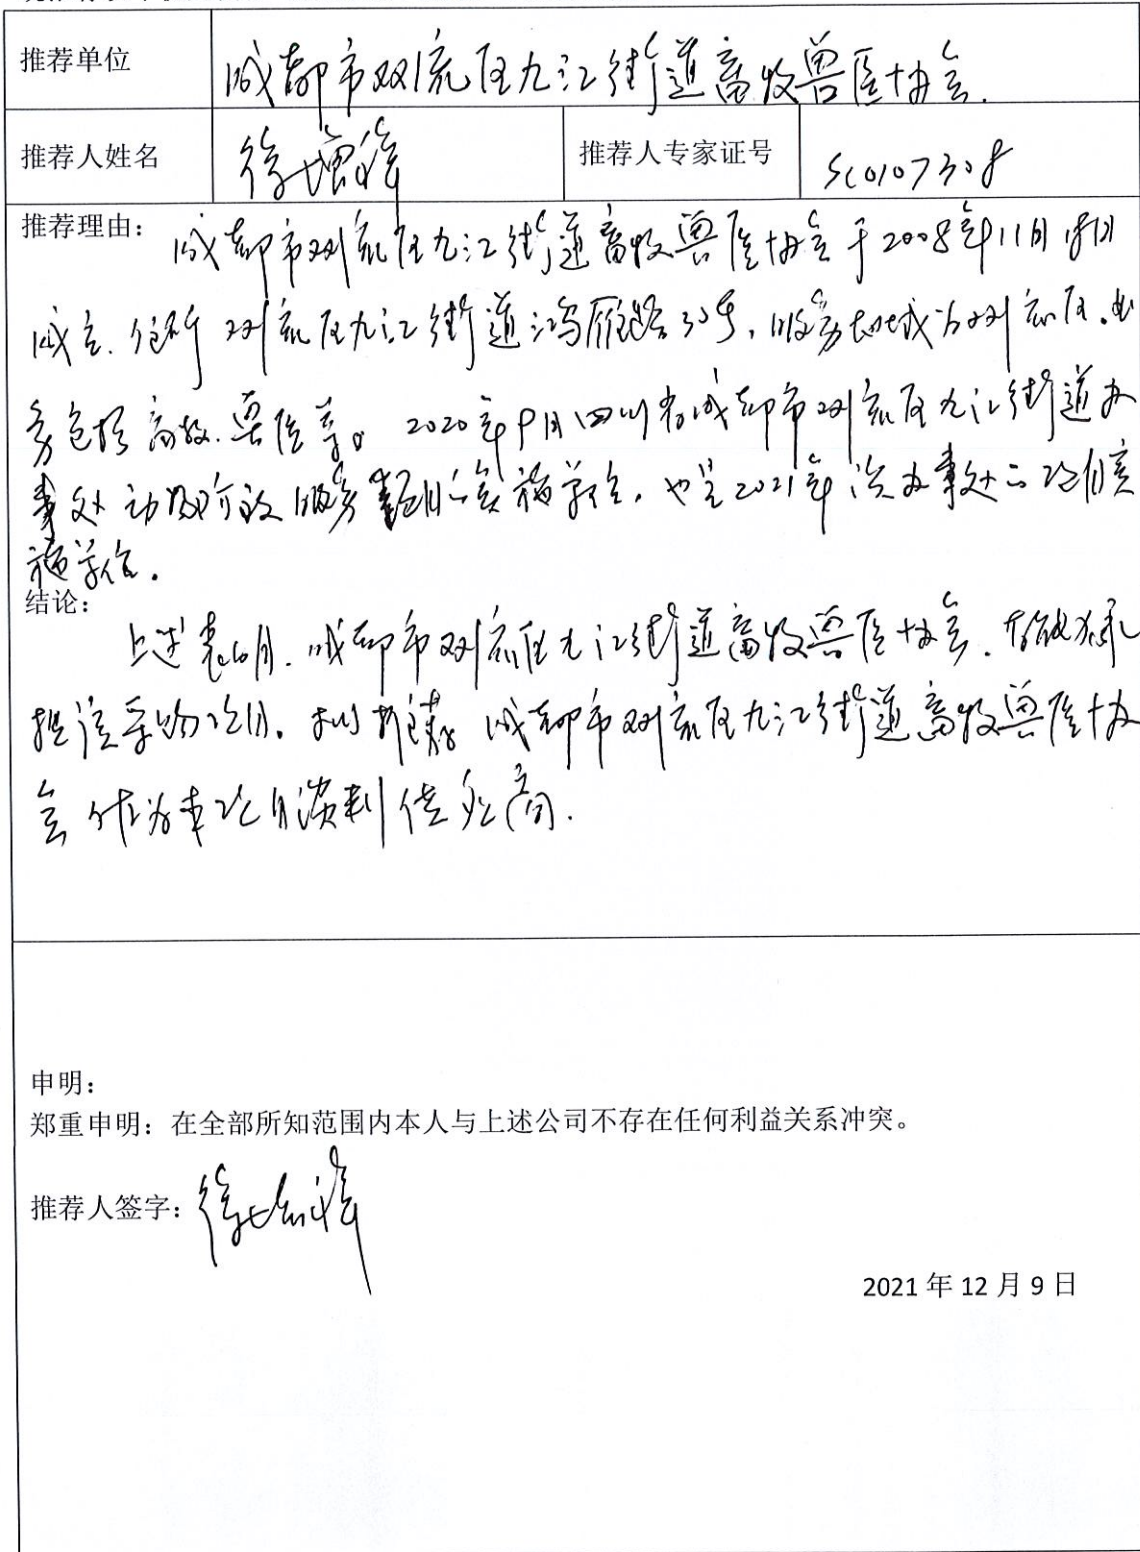 推荐单位 成都市双流区九江街道畜牧兽医协会.
推荐人姓名 徐增祥 推荐人专家证号 SC0107308
推荐理由： 成都市双流区九江街道畜牧兽医协会于2008年11月18日
成立.住所双流区九江街道鸿雁路30号,服务地域为双流区.业
务包括畜牧.兽医等。2020年9月四川省成都市双流区九江街道办
事处动物防疫服务项目的实施单位.也是2021年该办事处的项目实
施单位.
结论：
上述表明.成都市双流区九江街道畜牧兽医协会.有能力承
担该采购项目.推荐成都市双流区九江街道畜牧兽医协
会作为本项目谈判供应商.
申明：
郑重申明：在全部所知范围内本人与上述公司不存在任何利益关系冲突。
推荐人签字：徐增祥
2021 年 12 月 9 日